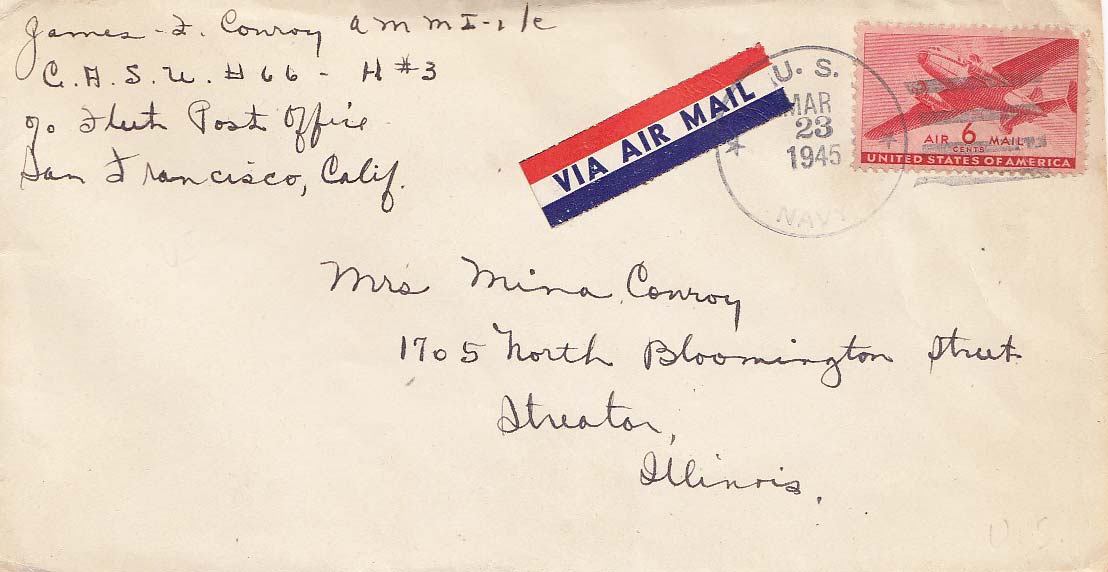 James F. Conroy AMMI-2/c
C.A.S.U. #66 - H#3
℅ Fleet Post Office
San Francisco, Calif.
VIA AIR MAIL
U. S.
MAR
23
1945
NAVY
AIR 6 MAIL
CENTS
UNITED STATES OF AMERICA
Mrs Mina Conroy
1705 North Bloomington Street
Streator,
Illinois.
U.S.